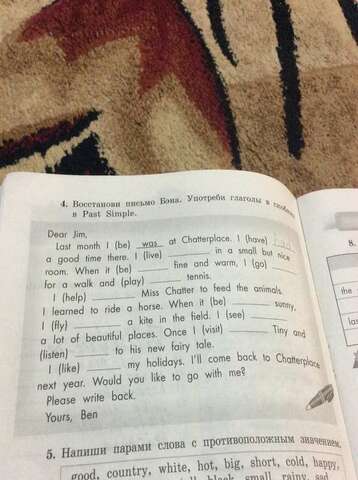 4. Восстанови письмо Бэна. Употреби глаголы в скобках
в Past Simple.
Dear Jim,
Last month I (be) was at Chatterplace. I (have)
a good time there. I (live) ______ in a small but nice
room. When it (be) ______ fine and warm, I (go) ___
for a walk and (play) ______ tennis.
I (help) ______ Miss Chatter to feed the animals.
I learned to ride a horse. When it (be) ______ sunny,
I (fly) ______ a kite in the field. I (see) ______
a lot of beautiful places. Once I (visit) ______ Tiny and
(listen) ______ to his new fairy tale.
I (like) ______ my holidays. I'll come back to Chatterplace
next year. Would you like to go with me?
Please write back.
Yours, Ben
5. Напиши парами слова с противоположным значением.
good, country, white, hot, big, short, cold, happy,
black, small, rainy, sad
8.
the
las